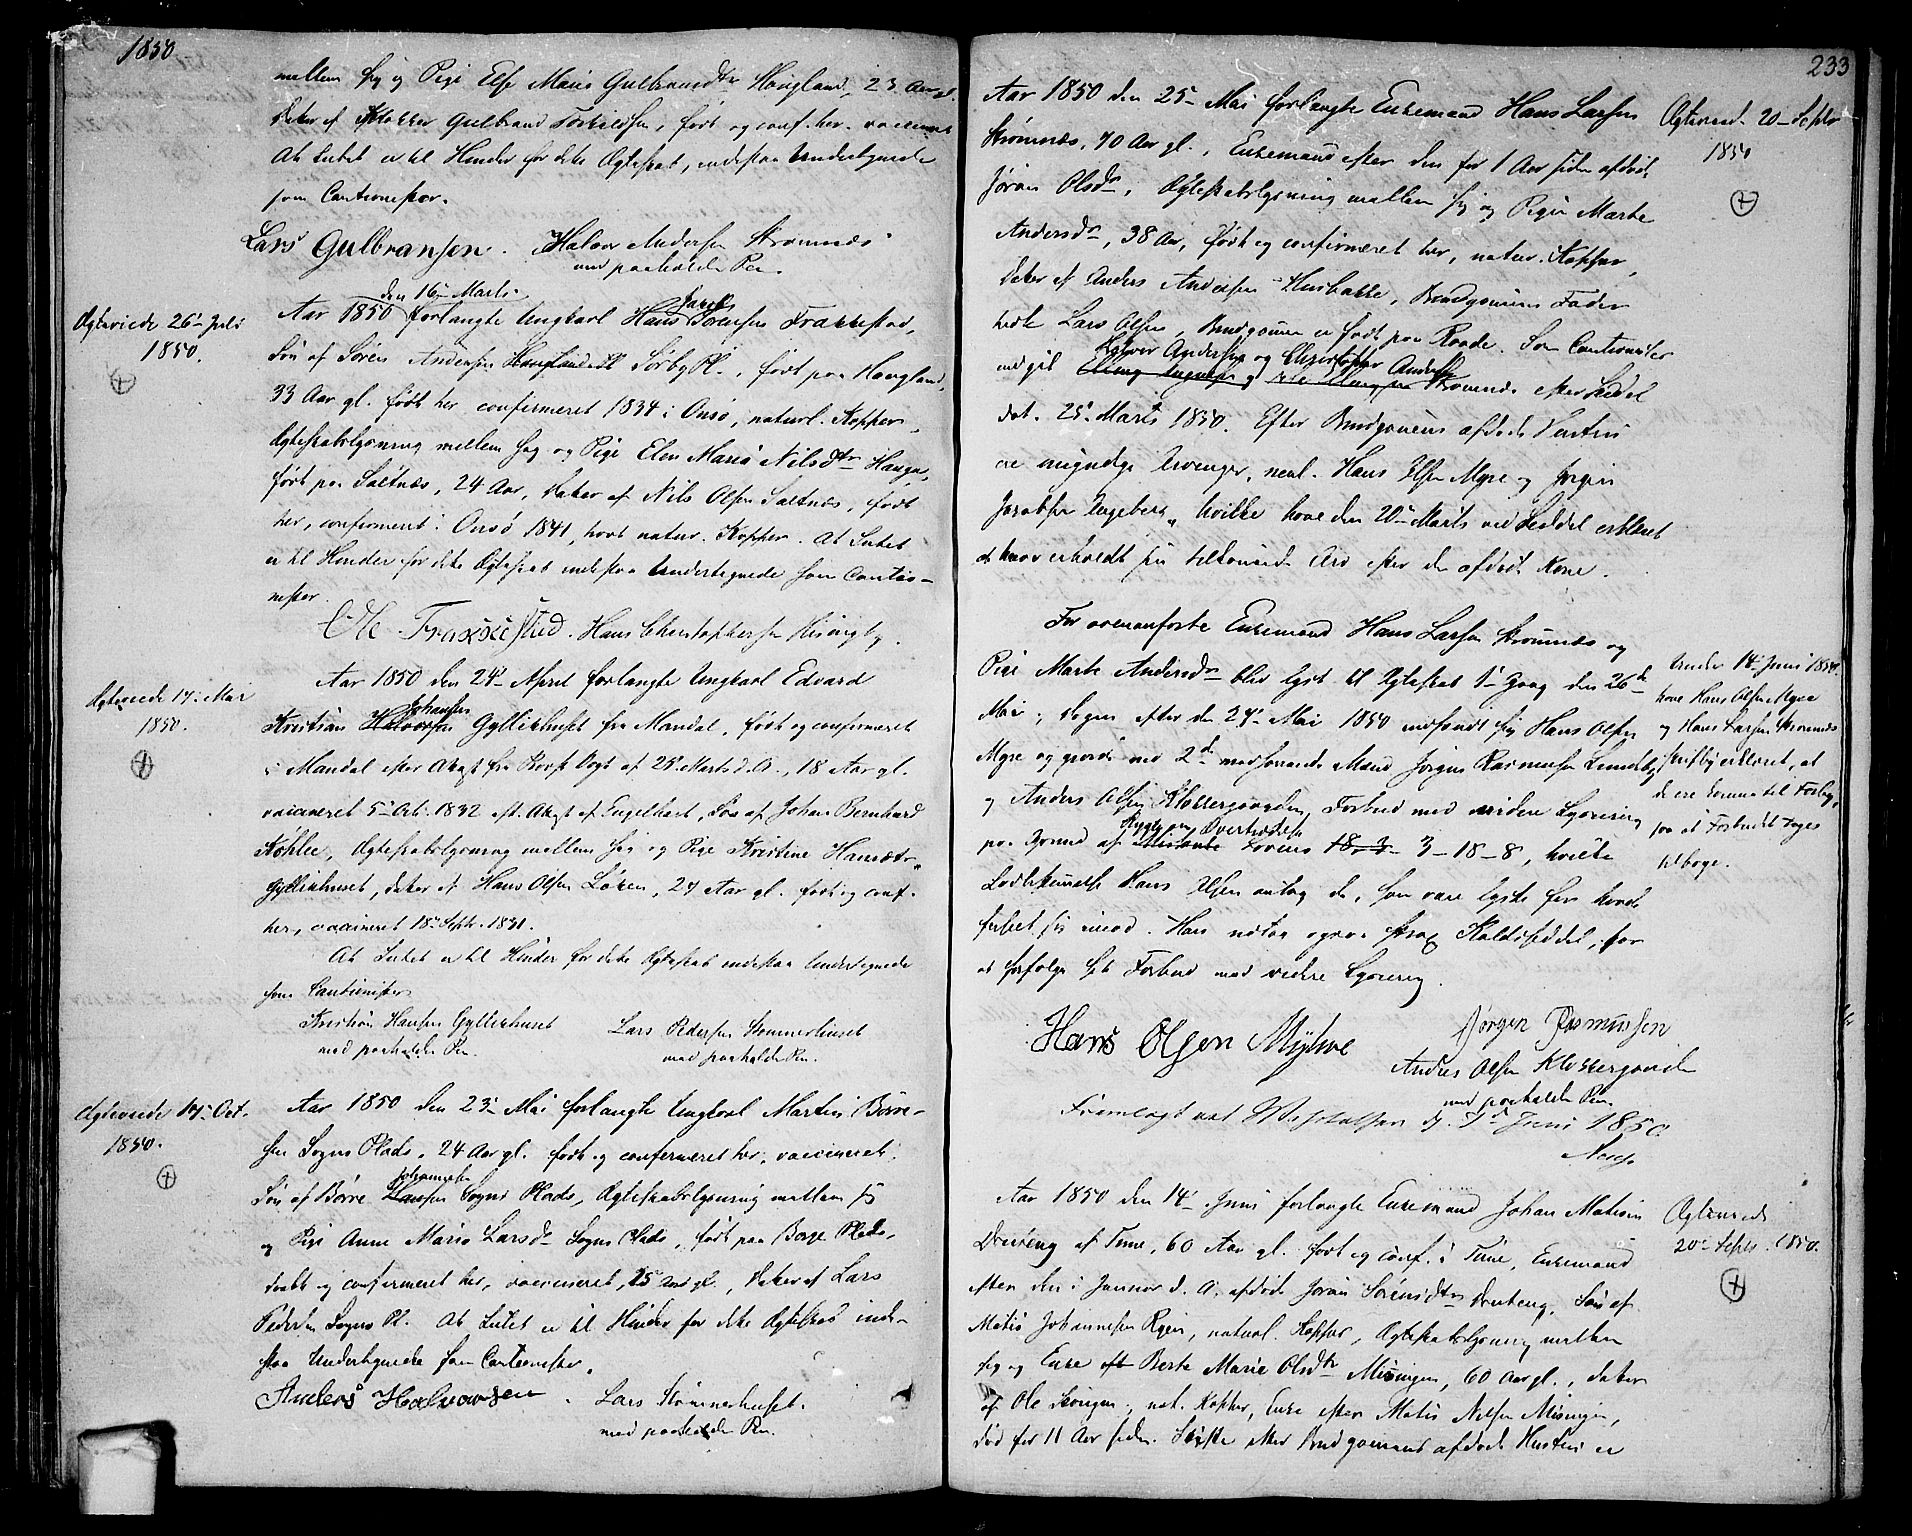 1850
mellem sig og Pige Else Marie Gulbrandsdtr Haugland, 23 Aar gl.
Datter af Klokker Gulbrand Torkildsen, født og conf. her. vaccineret
At Intet er til Hinder for dette Ægteskab, indestaa Undertegnede
som Cautionister.
Lars Gulbransen. Halvor Andersen Strømnæs
med paaholden Pen.
Ægteviede 26de Juli
1850.
den 16de Marts
Aar 1850 forlangte Ungkarl Hans Sørensen Frakkestad,
Søn af Søren Andersen Sørby Pl., født paa Haugland,
33 Aar gl. født her, confirmeret 1834 i Onsø, naturl. Kopper,
Ægteskabslysning mellem sig og Pige Elen Marie Nilsdtr Hauge,
født paa Saltnæs, 24 Aar, Datter af Nils Olsen Saltnæs, født
her, confirmeret i Onsø 1841, havt natur. Kopper. At Intet
er til Hinder for dette Ægteskab indestaa Undertegnede som Cautio-
nister.
Ole Frakkestad. Hans Christophersen Kisingby.
Ægteviede 17de Mai
1850.
Aar 1850 den 24de April forlangte Ungkarl Edvard
Johansen
Kristian Halvorsen Gyltekhuset fra Mandal, født og confirmeret
i Mandal efter Attest fra Provst Vogt af 25de Marts d. A., 18 Aar gl.
vaccineret 5te Octb. 1832 eft. Attest af Engelhart, Søn af Johan Bernhard
Köhler, Ægteskabslysning mellem sig og Pige Kristine Hansdtr
Gyltekhuset, datter af Hans Olsen Löken, 24 Aar gl. født og conf.
her, vaccineret 18de Sept. 1831.
At Intet er til Hinder for dette Ægteskab indestaa Undertegnede
som Cautionister
Kristian Hansen Gyltekhuset Lars Pedersen Stommerhuset
med paaholden Pen. med paaholden Pen.
Ægteviede 17de Oct.
1850.
Aar 1850 den 23de Mai forlangte Ungkarl Martin Børre-
sen Sogns Plads, 24 Aar gl. født og confirmeret her, vaccineret,
Johannesen
Søn af Børre Hansen Sogns Plads, Ægteskabslysning mellem sig
og Pige Anne Marie Larsdr Sogns Plads, født paa Borge Plads,
døbt og confirmeret her, vaccineret, 25 Aar gl., Datter af Lars
Pedersen Sogns Pl. At Intet er til Hinder for dette Ægteskab inde-
staa Undertegnede som Cautionister.
Anders Halvorsen. Lars Stömmerhuset.
med paaholden Pen.
233
Aar 1850 den 25de Mai forlangte Enkemand Hans Larsen
Strømnæs, 70 Aar gl., Enkemand efter den for 1 Aar siden afdøde
Jøran Olsdr, Ægteskabslysning mellem sig og Pigen Marte
Andersdr, 38 Aar, født og confirmeret her, natur. Kopper,
datter af Anders Andersen Husbakke, Brudgommens Fader
hedte Lars Olsen, Brudgommen er født paa Raade. Som Cautionister
Halvor Andersen og Christopher Andersen
indgik Strømnæs efter Seddel
dat. 25de Marts 1850. Efter Brudgommens afdøde Hustru
ere myndige Arvinger, neml. Hans Olsen Myre og Jørgen
Jacobsen Engeberg, hvilke have den 20de Marts ved Seddel erklæret
at have erholdt sin tilkommende Arv efter den afdøde Kone.
Ægteviede 20de Septbr
1850
For ovenanførte Enkemand Hans Larsen Strømnæs og
Pige Marte Andersdr blev lyst til Ægteskab 1ste Gang den 26de
Mai, Dagen efter den 27de Mai 1850 indfandt sig Hans Olsen
Myre og gjorde ved 2de medførende Mænd Jørgen Rasmussen Lundeby
og Anders Olsen Klokkergaarden, Forbud mod videre Lysning
Overtrædelse
paa Grund af Lovens 3-18-8, hvilke
Hans Olsen antog de, som vare lyste for havde
forbet sig imod. Han udtog ogsaa strax Kaldsseddel, for
at forfølge sit Forbud mod videre Lysning.
Under 14de Juni 1850
have Hans Olsen Myre
og Hans Larsen Strømnæs
skriftlig erklæret, at
de ere komne til Forlig,
saa at Forbudet tages
tilbage.
Hans Olsen Myhre Jørgen Rasmussen
Anders Olsen Klokkergaarden
med paaholden Pen.
Fremlagt ved d. 1ste Juni 1850.
Aar 1850 den 14de Juni forlangte Enkemand Johan Matisen
Drueng af Tune, 60 Aar gl. født og conf. i Tune, Enkemand
efter den i Januar d. A. afdøde Jøran Sörensdtr Drueng, Søn af
Matis Johannesen Ryen, natural. Kopper, Ægteskabslysning mellem
sig og Enke Berte Marie Olsdtr Misingen, 60 Aar gl., datter
af Ole Skringen, nat. Kopper, Enke efter Matis Nilsen Misingen,
død for 11 Aar siden. Skifte efter Brudgommens afdøde Hustru er
Ægteviede
20de Septbr. 1850.